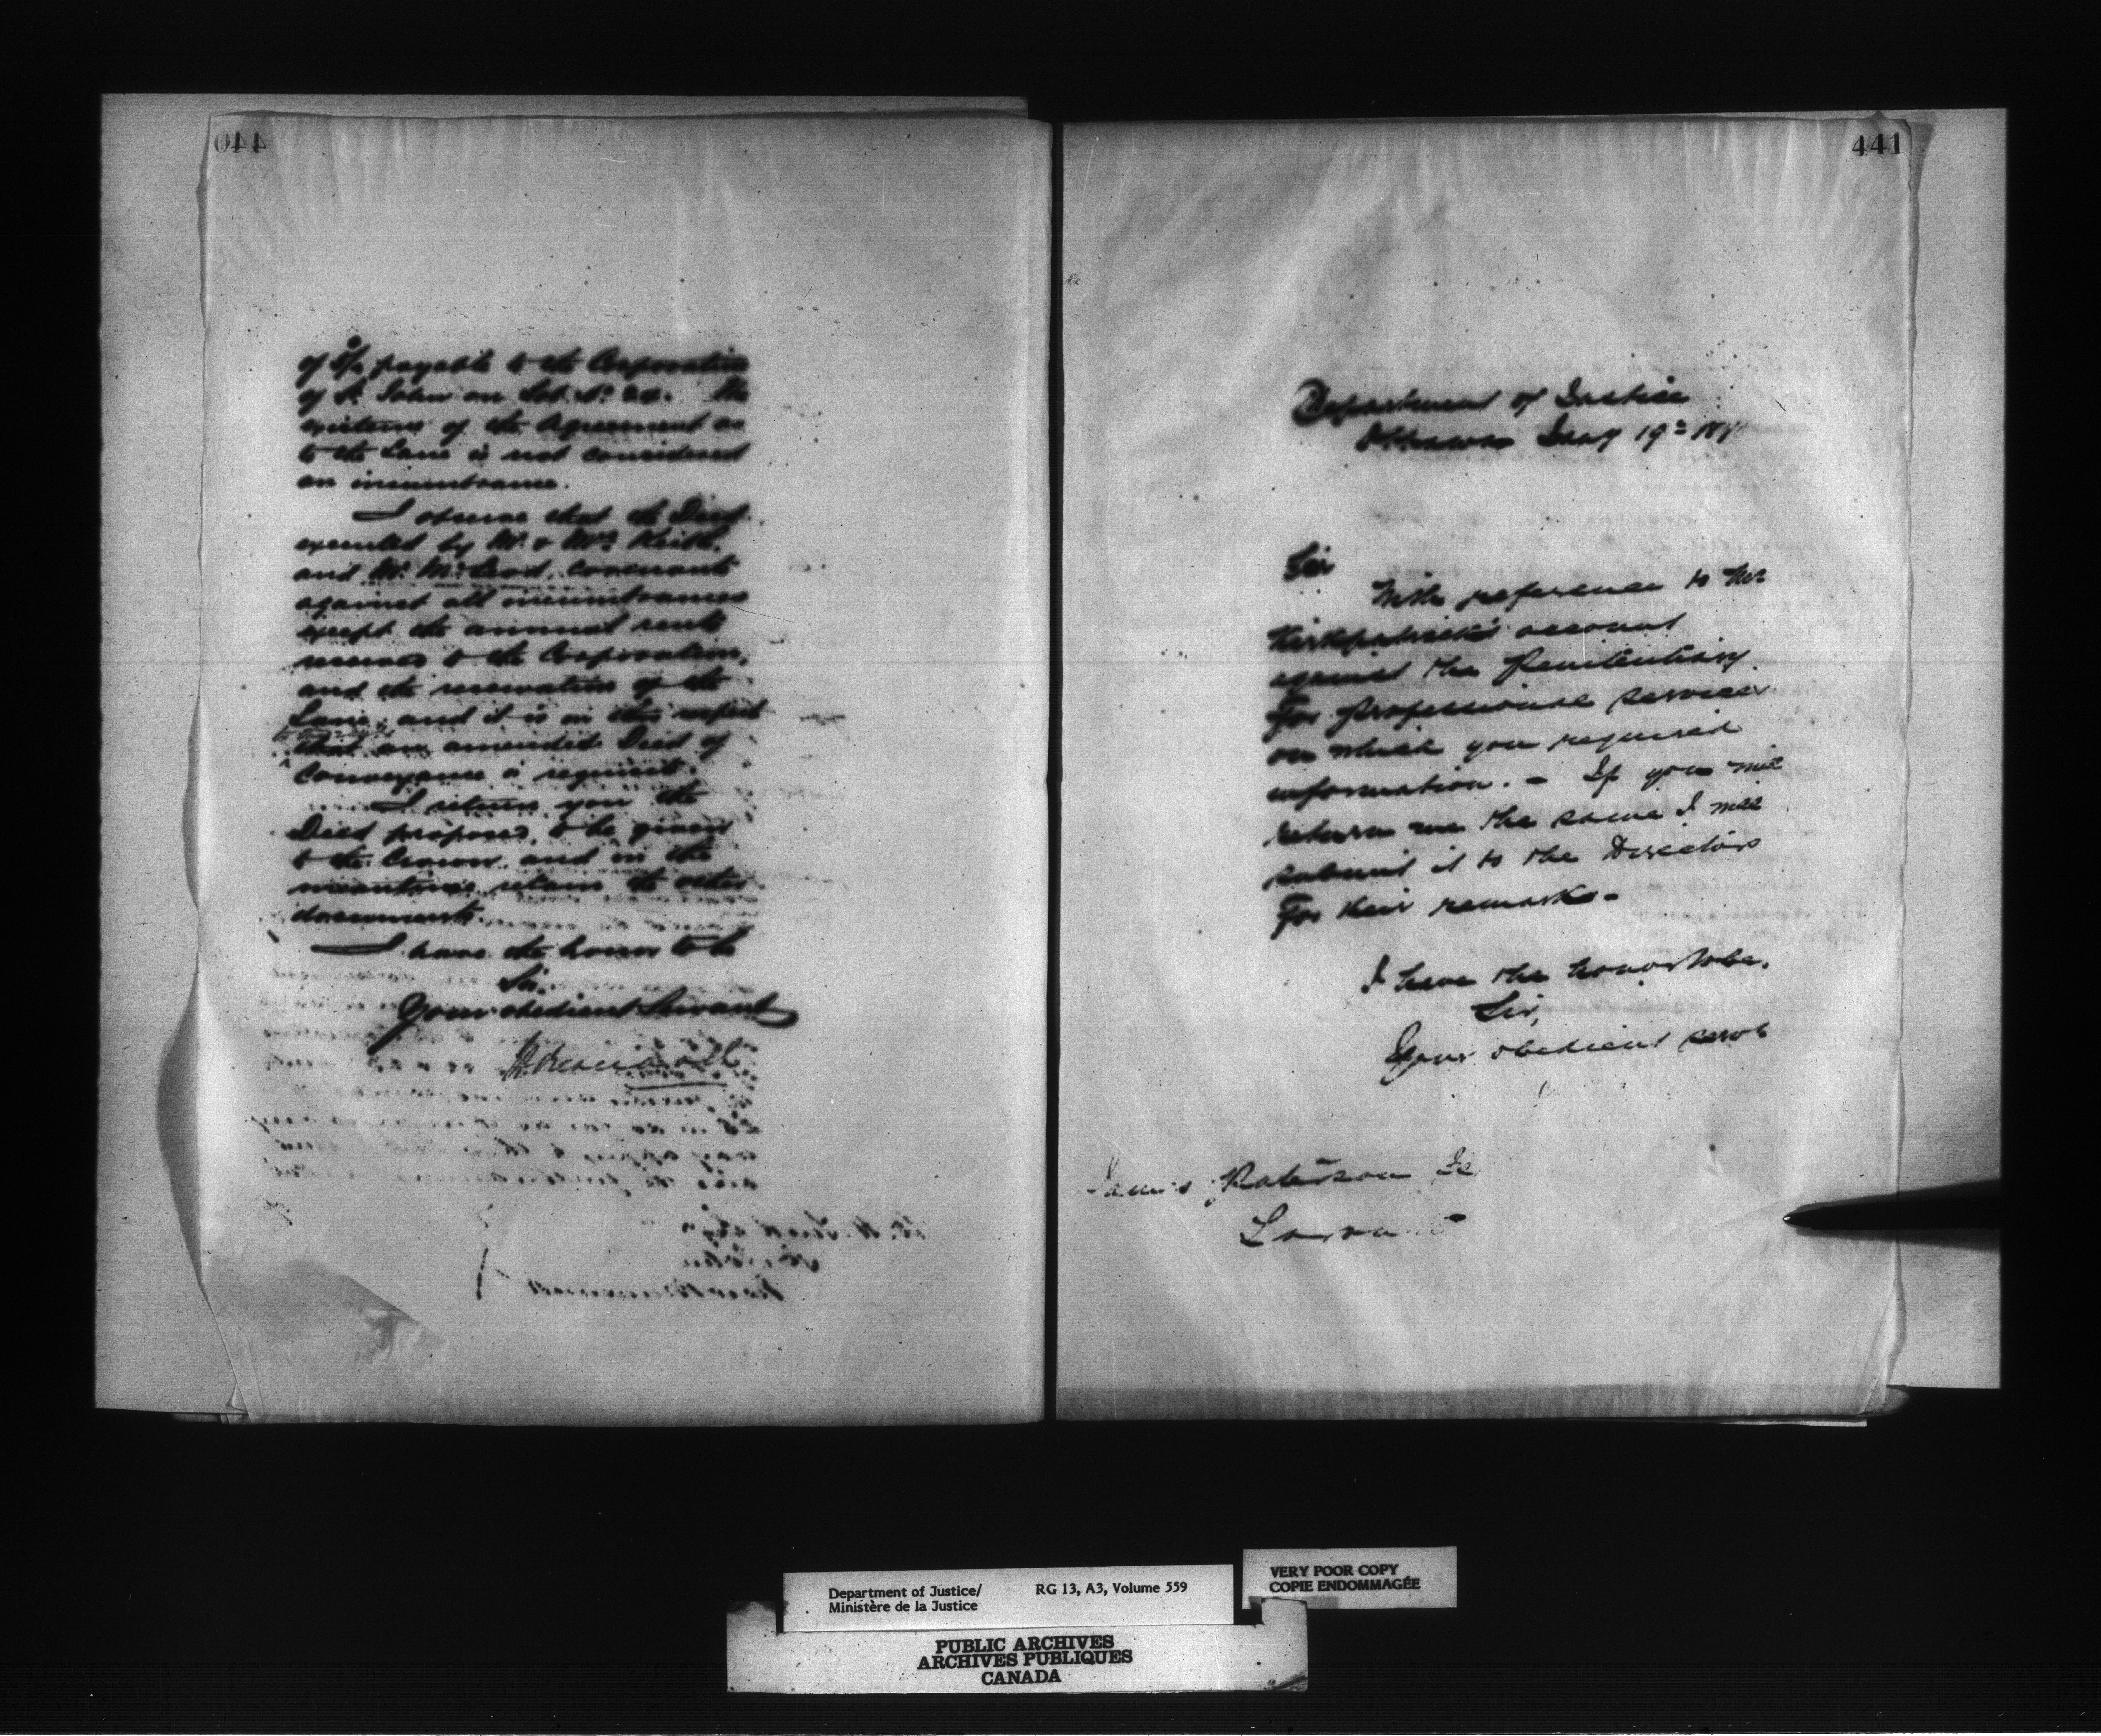 440
of 8/- payable to the Corporation
of St. John on Lot No. 24. The
existence of the Agreement as
to the Lane is not considered
an incumbrance.
I observe that the Deed
executed by Mr. & Mrs. Keith,
and Mr. McLeod, covenants
against all incumbrances
except the annual rent
reserved to the Corporation,
and the reservation of the
Lane, and it is in this respect
that an amended Deed of
Conveyance is required.
I return you the
Deed proposed to be given
to the Crown and in the
meantime retain the other
documents.
I have the honor to be
Sir,
Your obedient Servant
441
Department of Justice
Ottawa May 19th
Sir
With reference to Mr
Kirkpatrick's account
against the Penitentiary
for professional services
on which you required
information. - If you will
return me the same I will
submit it to the Directors
for their remarks -
I have the honor to be,
Sir,
Your obedient servt
James Paterson
Department of Justice/
Ministère de la Justice
RG 13, A3, Volume 559
VERY POOR COPY
COPIE ENDOMMAGÉE
PUBLIC ARCHIVES
ARCHIVES PUBLIQUES
CANADA